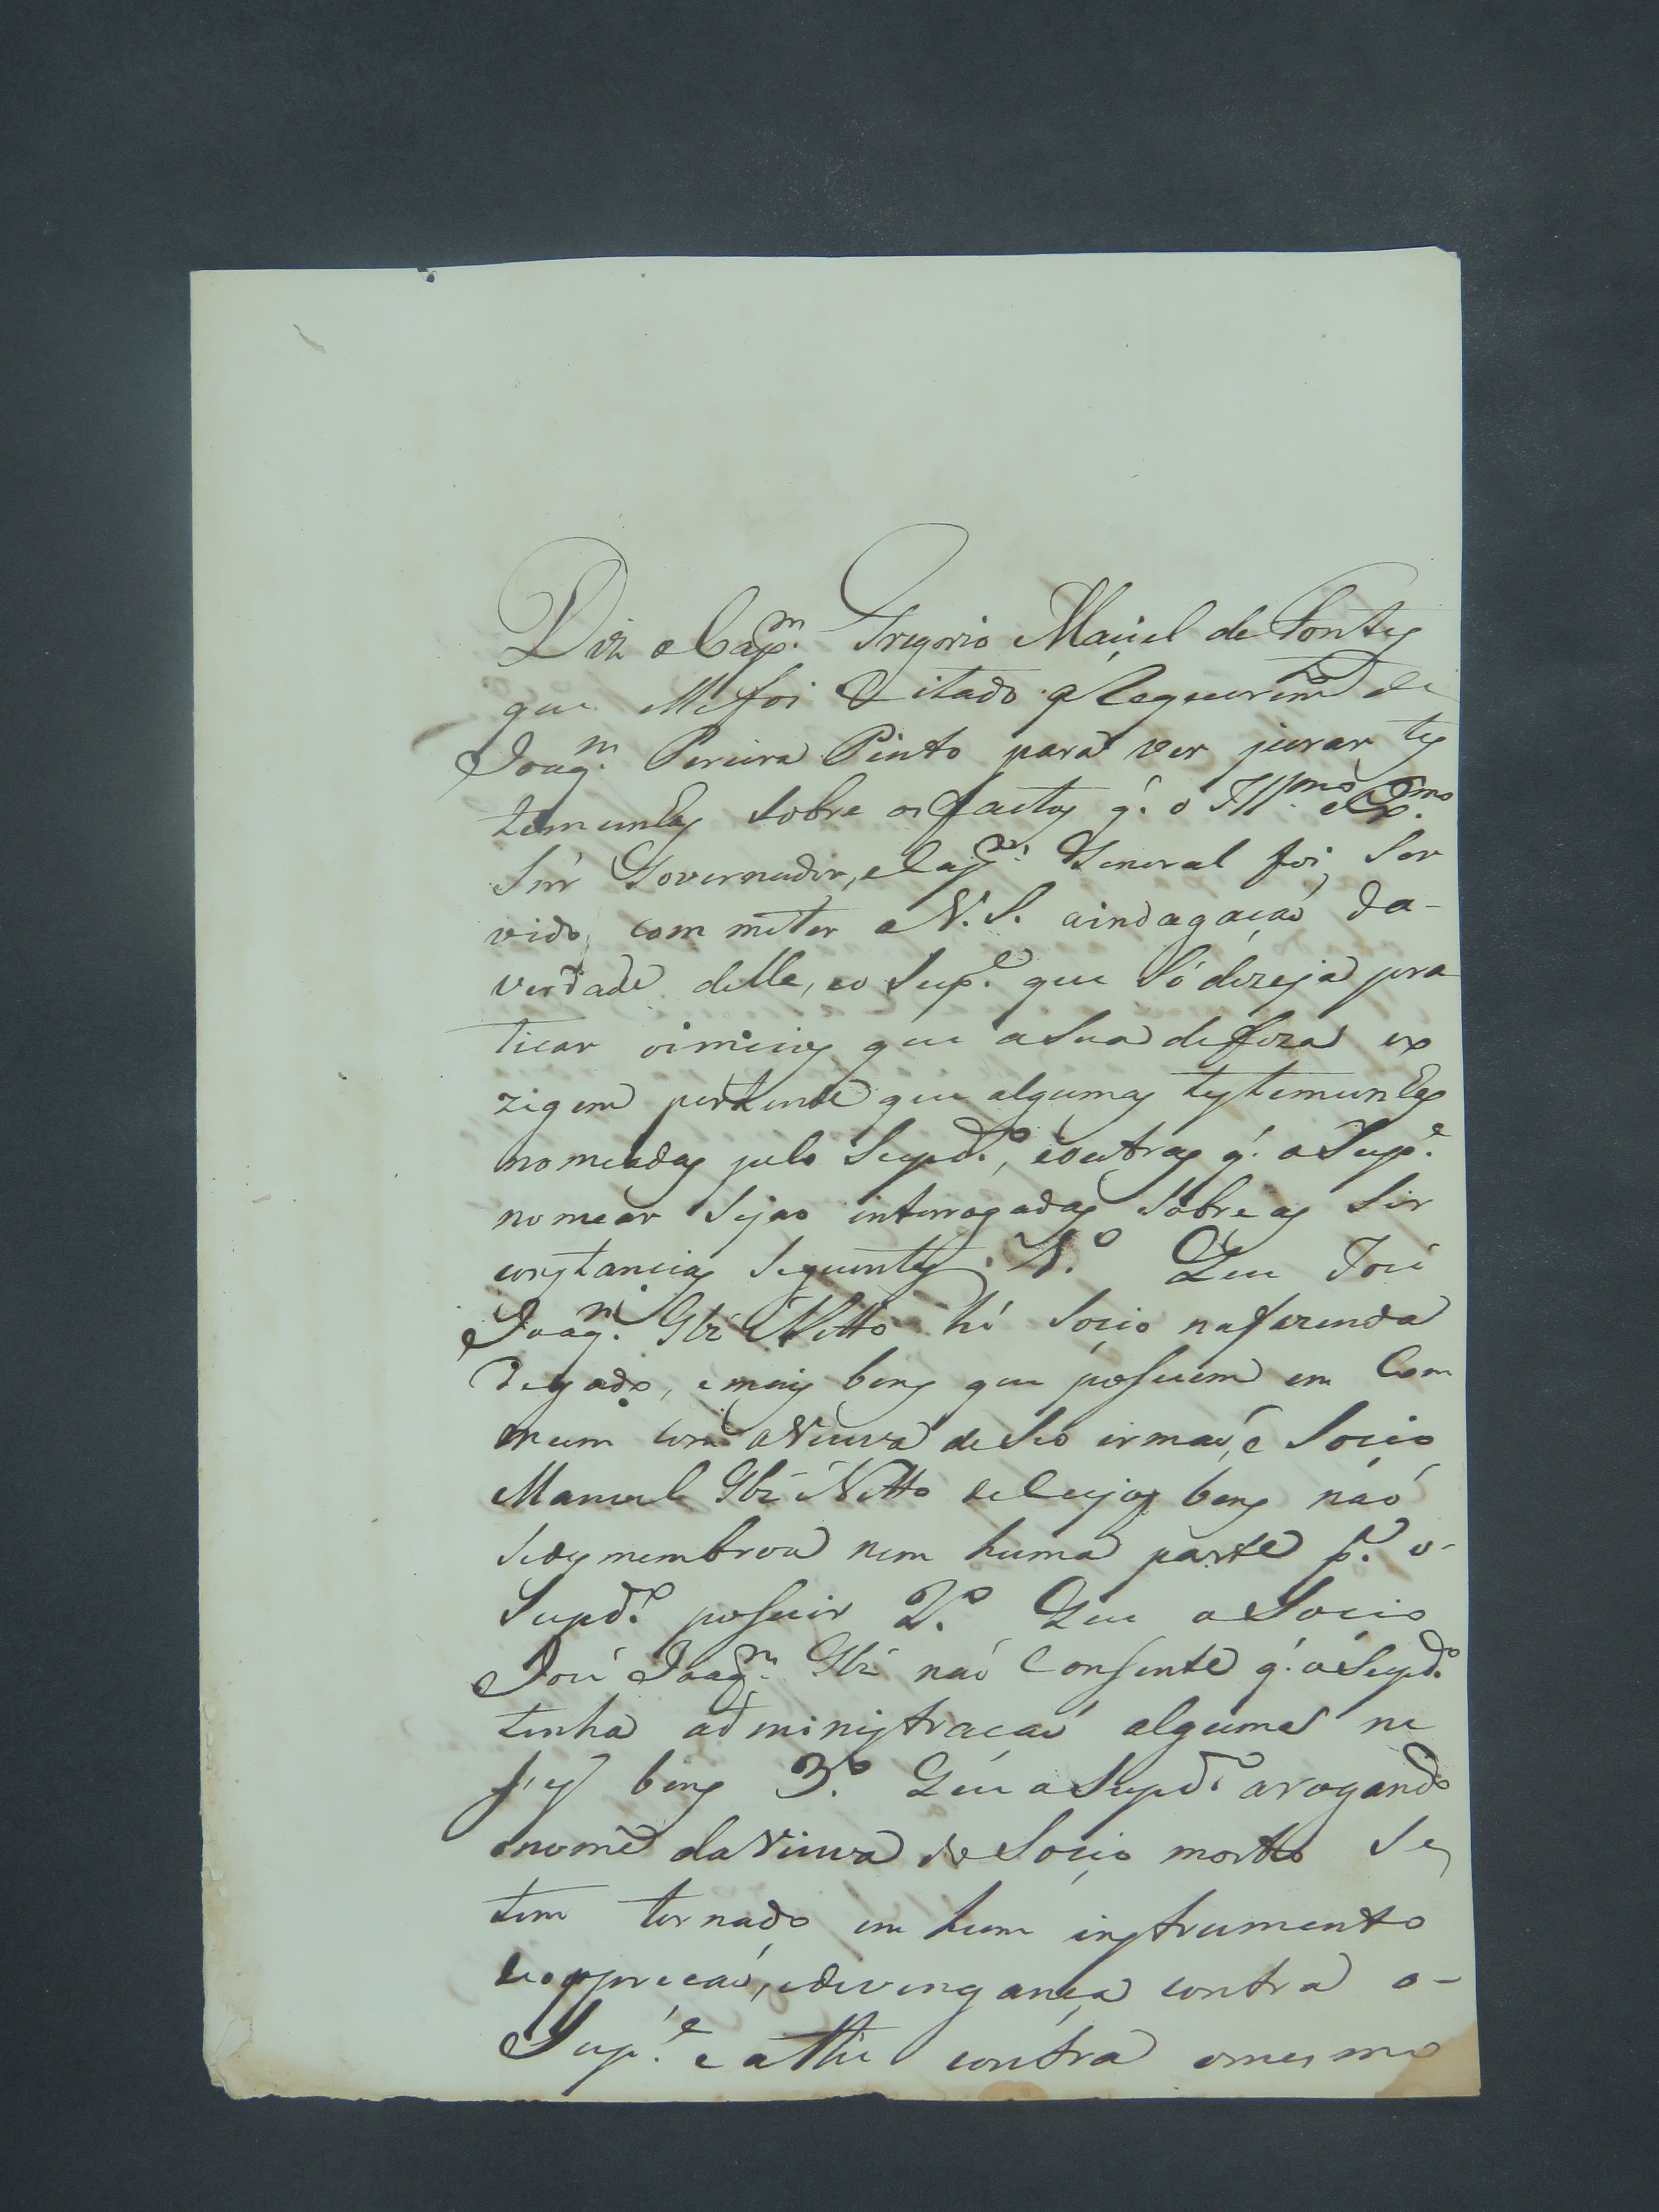 Diz o Cap.m Gregorio Maciel de Pontes
que elle foi Citado p Requerim.to de
Joaq.m Pereira Pinto para ver jurar tes
temunhas sobre os factos q. o Ill.mo e Ex.mo
Snr Governador, e Cap.m General foi ser
vido commeter a V. S. aindagação da-
verdade delle, e o Sup.e que só dezeja pra
ticar os meios que a sua defeza ex
zigem pertende que algumas testemunhas
nomeadas pelo Supd.o, e outras q. o Sup.e
nomear sejao interrogadas sobre as Sir
cunstancias seguintes. 1.o Que José
Joaq.m Glz Netto hé Socio nafazenda
degado, emais bens que possuem em Com
mum com aViuva de seo irmaõ, e Socio
Manoel Glz Netto de Cujos bens naõ
sedesmembrou nem huma parte p.a o-
Supd.o possuir 2.o Que o Socio
José Joaq.m Glz naõ Consente q. o Supd.o
tenha administracaõ alguma ne
sses bens 3.o Que o Supd.o arogando
onome daViuva do Socio morto se
tem tornado em hum instrumento
deoppreçaõ, edevingança contra o-
Sup.e e athe contra omesmo